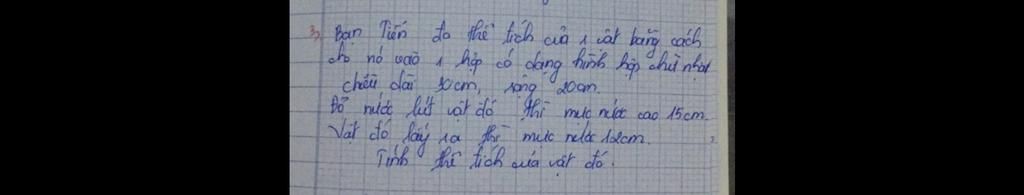 3, Bạn Tiến đo thể tích của 1 vật bằng cách
cho nó vào 1 hộp có dạng hình hộp chữ nhật
chiều dài 30cm, rộng 20cm.
Đổ nước lút vật đó thì mực nước cao 15cm.
Vật đó lấy ra thì mực nước 12cm.
Tính thể tích của vật đó.